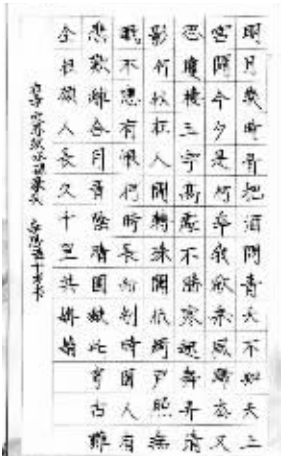 明月幾時有把酒問青天不知天上
宮闕今夕是何年我欲乘風歸去又
恐瓊樓玉宇高處不勝寒起舞弄清
影何似在人間轉朱閣低綺戶照無
眠不應有恨何時長向別時圓人有
悲歡離合月有陰晴圓缺此事古難
全但願人長久千里共嬋娟